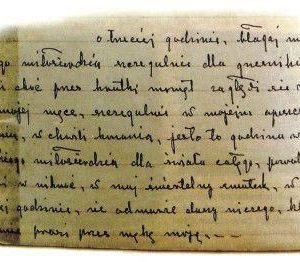 o trzeciej godzinie, błagaj m
go miłosierdzia szczególnie dla grzeszni
i choć przez krótki moment zagłęb się
mojej męce, szczególnie w mojem opuszcz
niu, w chwili konania, jest to godzina w
iego miłosierdzia dla świata całego, pozwo
wniknąć, w mój śmiertelny smutek, w
ej godzinie, nie odmówię duszy niczego, kt
nie prosi przez mękę moją, ---